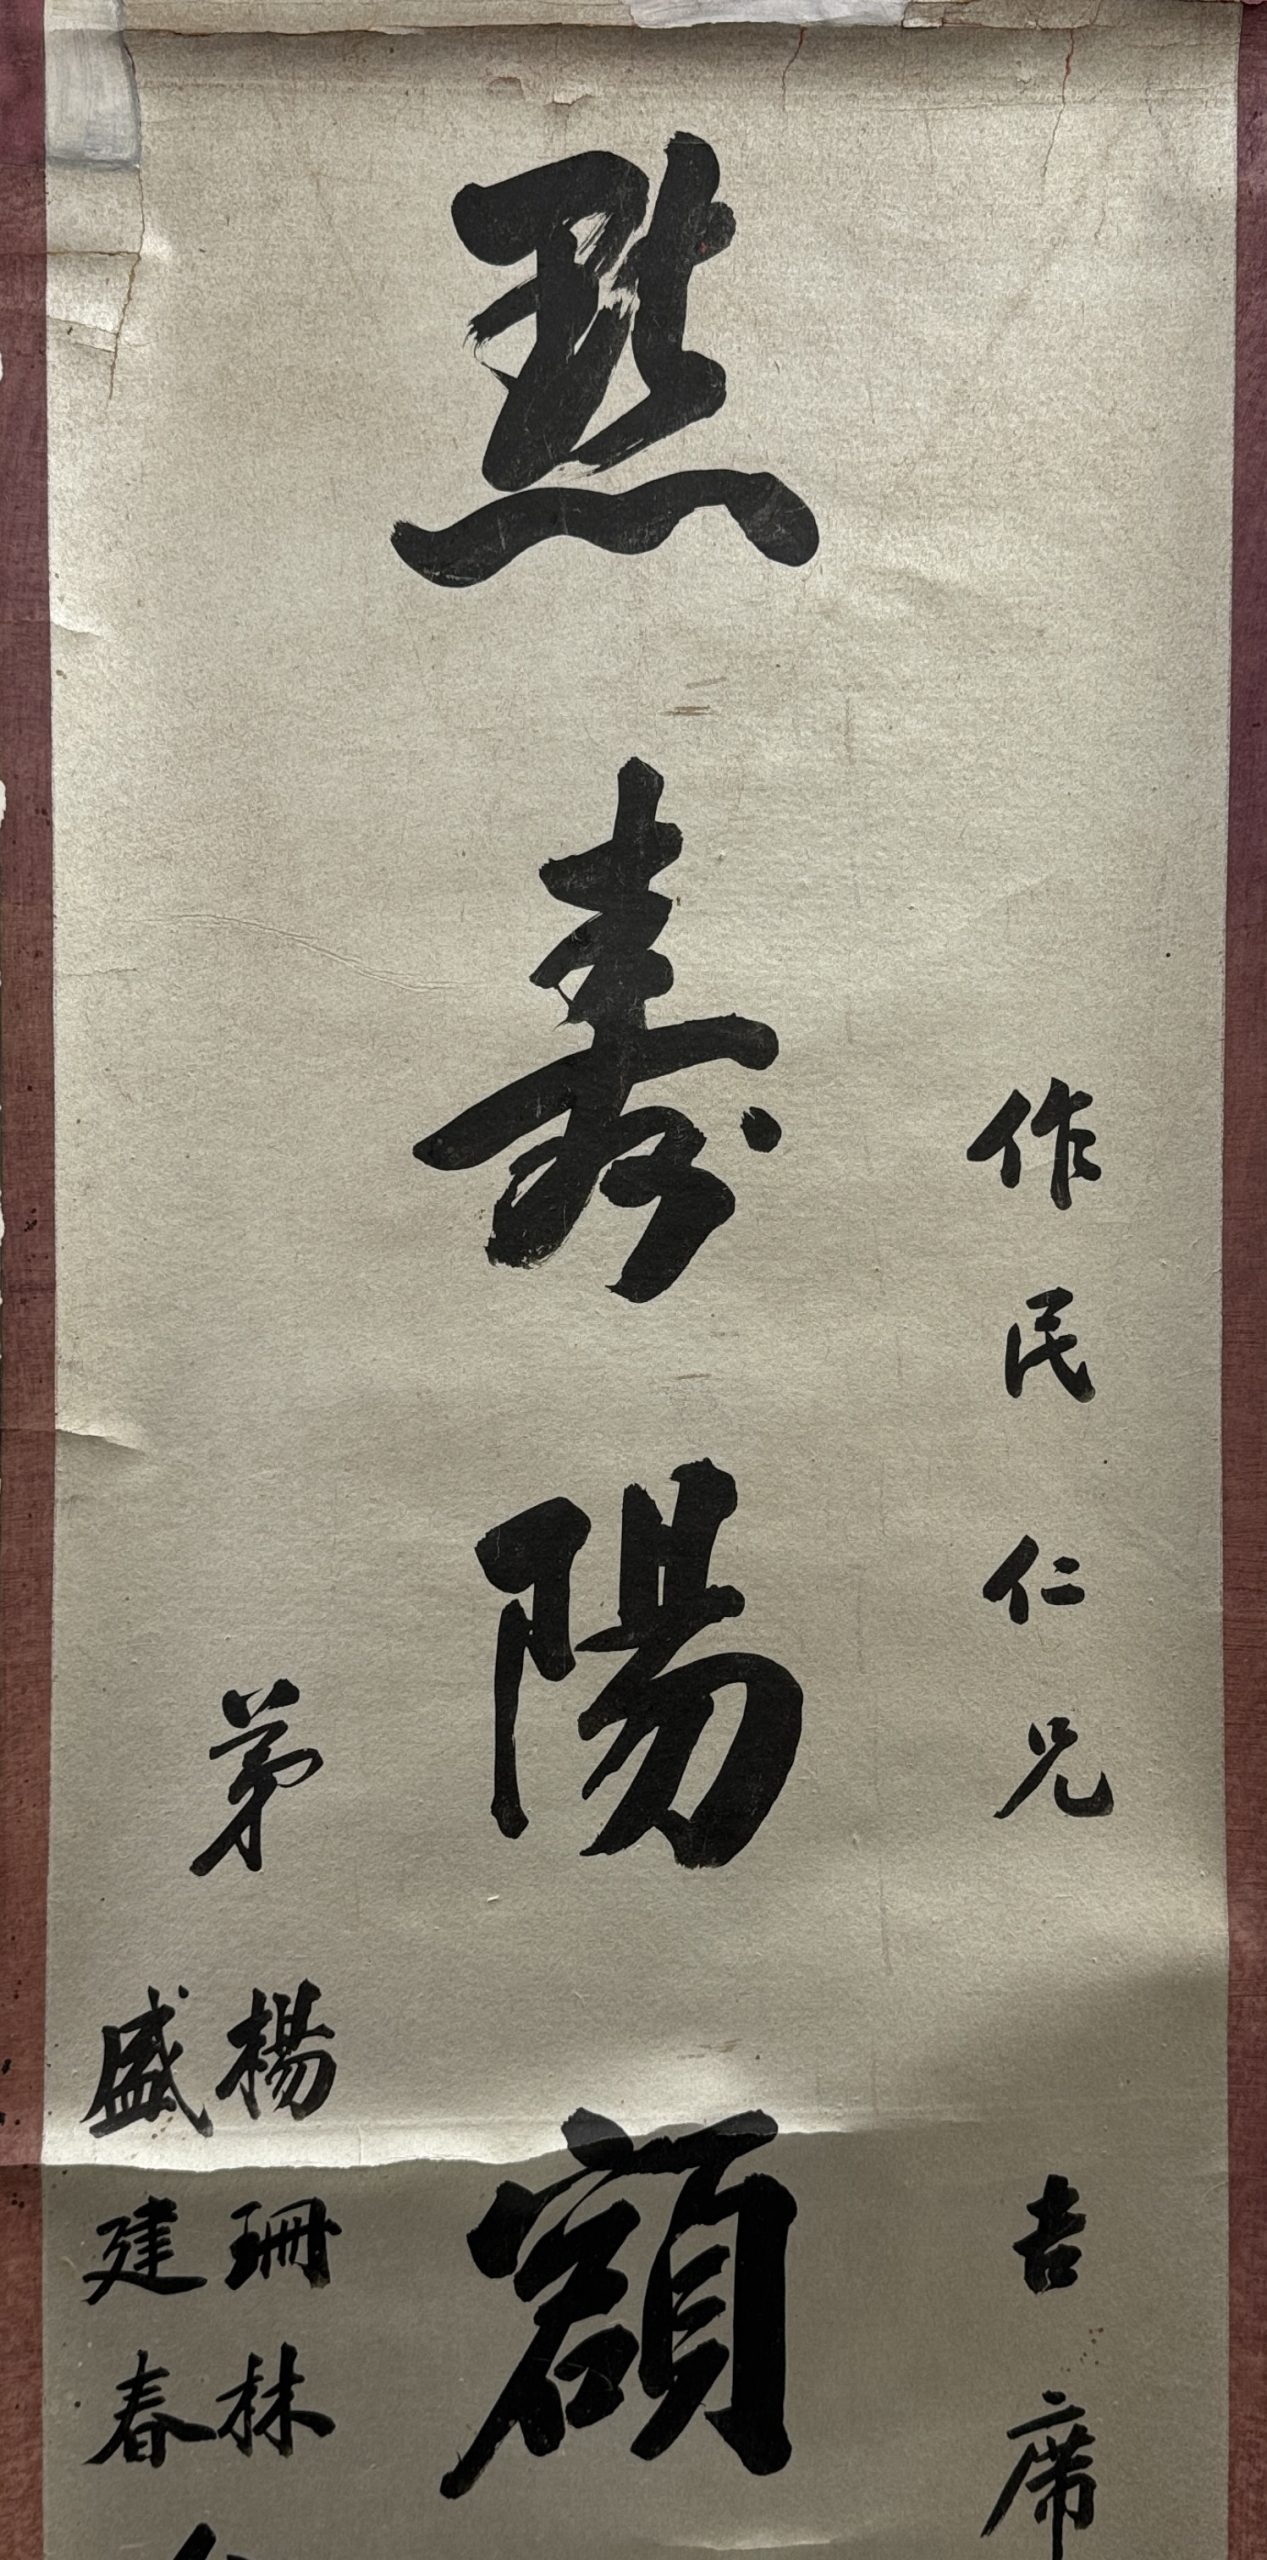 作民仁兄吉席
點壽陽額
弟
楊珊林
盛建春